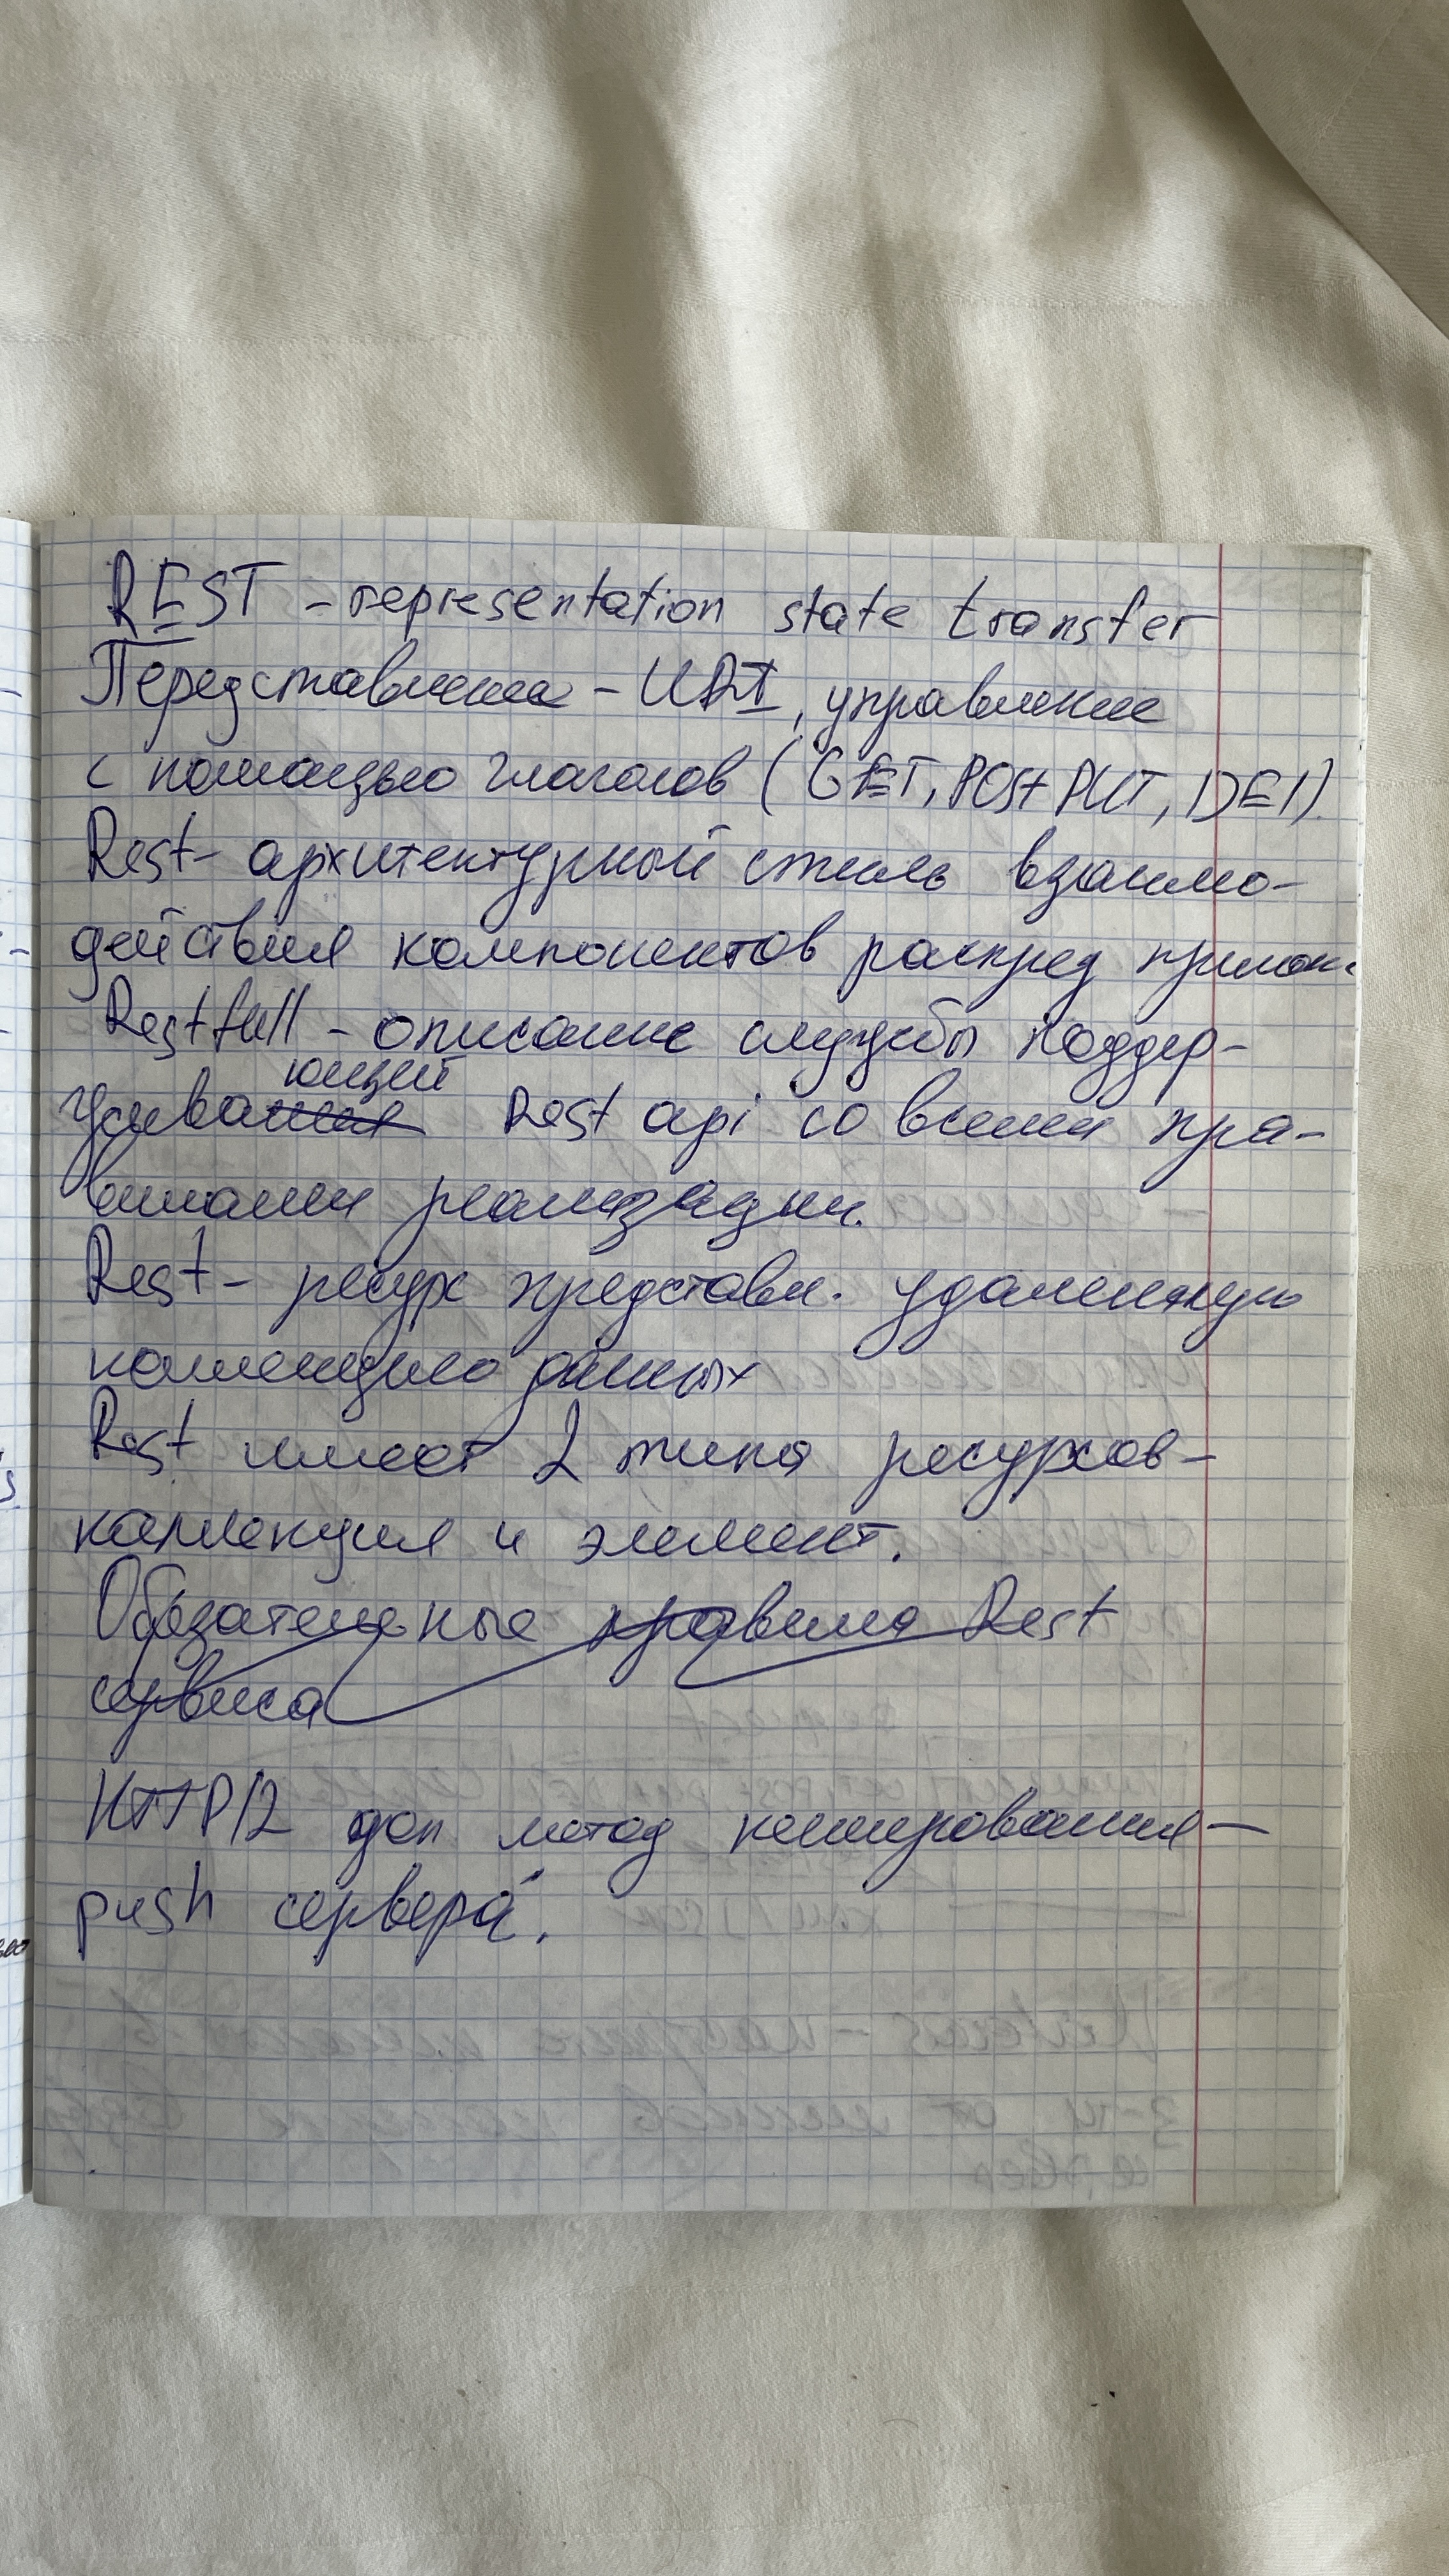 REST - representation state transfer
Передставление - URI, управление
с помощью глаголов (GET, POST PUT, DEL)
Rest - архитектурный стиль взаимо-
действия компонентов распред прилож.
Restfull - описание службы поддер-
ющей
жива Rest api со всеми пра-
вилами реализации.
Rest - ресурс представл. удаленную
коллекцию данных
Rest имеет 2 типа ресурсов -
коллекция и элемент.
Обязательные правила Rest
сервиса
HTTP/2 доп метод кеширования -
push сервера.